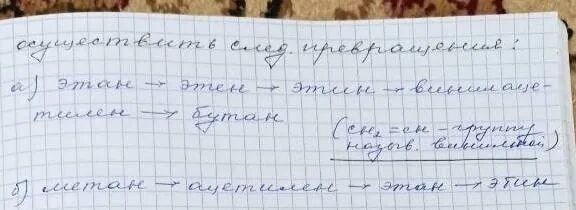 осуществить след. превращения:
а) этан → этен → этин → винилаце-
тилен → бутан
(CH₂=CH – группу
назыв. винильной)
б) метан → ацетилен → этан → этин